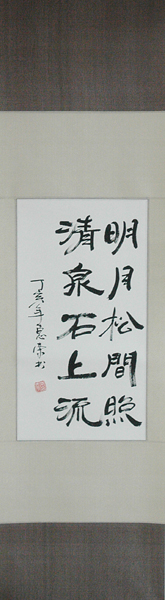 明月松間照
清泉石上流
丁亥年